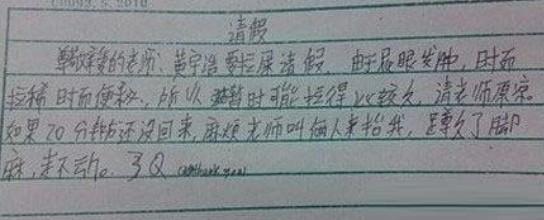 请假
尊敬的老师:黄宇浩要拉屎请假。由于屁眼发肿,时而
拉稀时而便秘,所以暂时可能拉得比较久,请老师原谅。
如果20分钟还没回来,麻烦老师叫俩人来抬我,蹲久了脚
麻,走不动。3Q